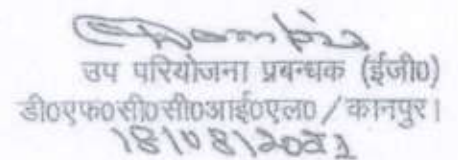 उप परियोजना प्रबन्धक (ईजी0)
डी0एफ0सी0सी0आई0एल0/कानपुर।
18/08/2021